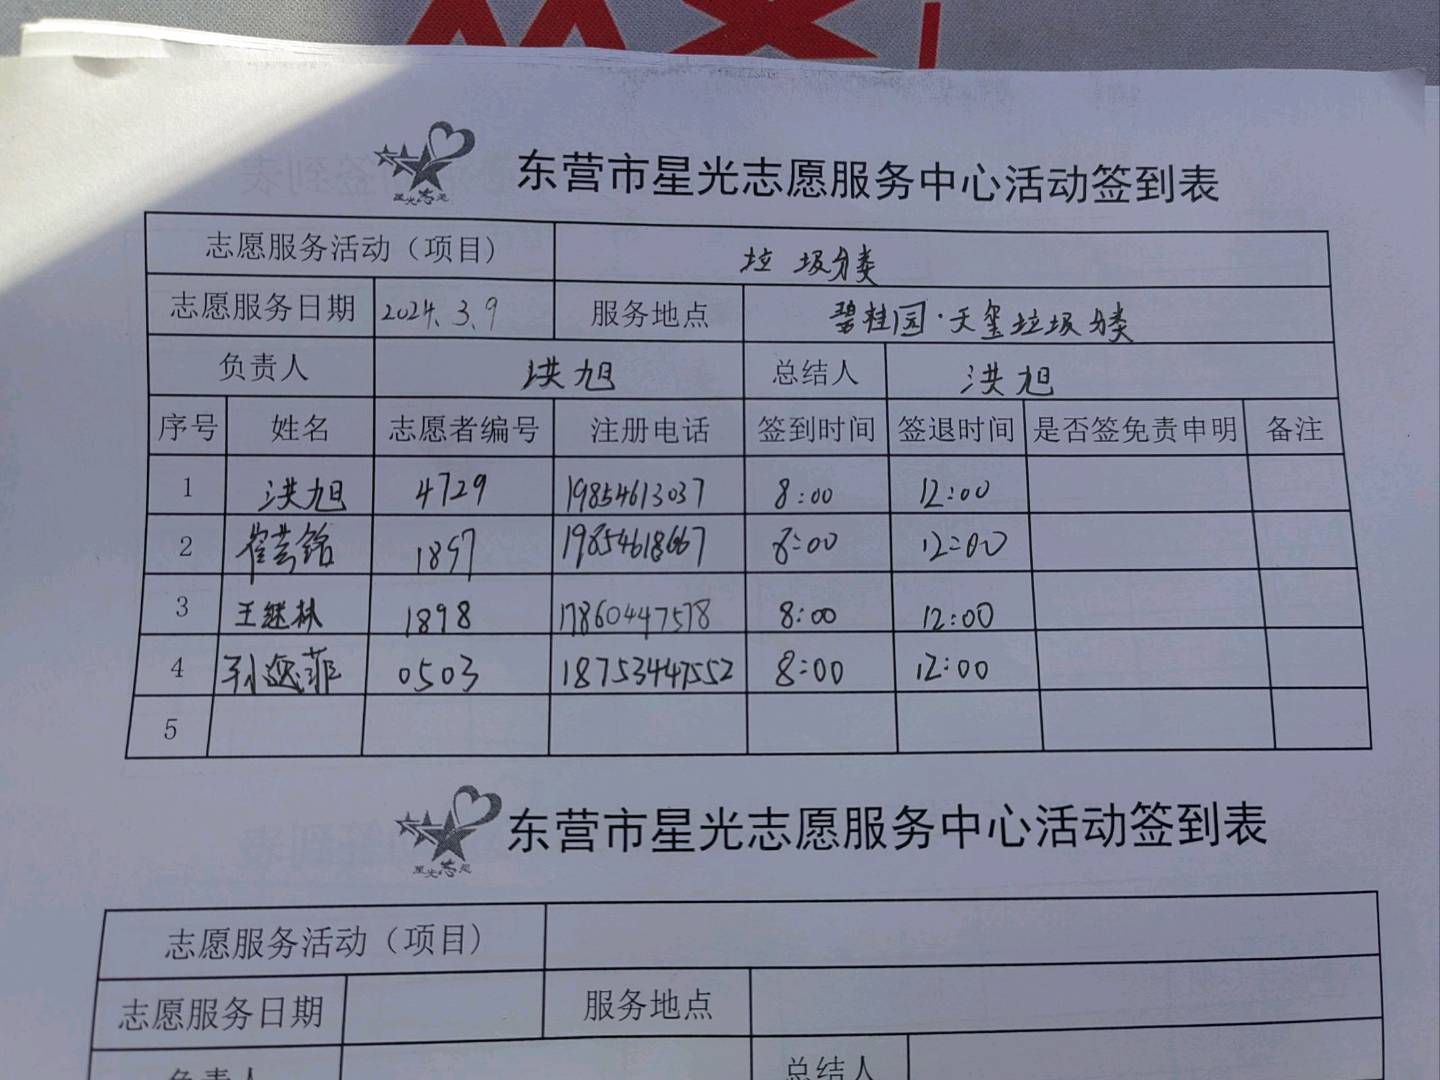 东营市星光志愿服务中心活动签到表
志愿服务活动（项目) 垃圾分类
志愿服务日期 2024.3.9 服务地点 碧桂园·天玺垃圾分类
负责人 洪旭 总结人 洪旭
序号 姓名 志愿者编号 注册电话 签到时间 签退时间 是否签免责申明 备注
1 洪旭 4729 19854613037 8:00 12:00
2 崔芸铭 1897 19854618667 8:00 12:00
3 王继林 1898 17860447578 8:00 12:00
4 孙逸菲 0503 18753447552 8:00 12:00
5
东营市星光志愿服务中心活动签到表
志愿服务活动（项目)
志愿服务日期 服务地点
负责人 总结人